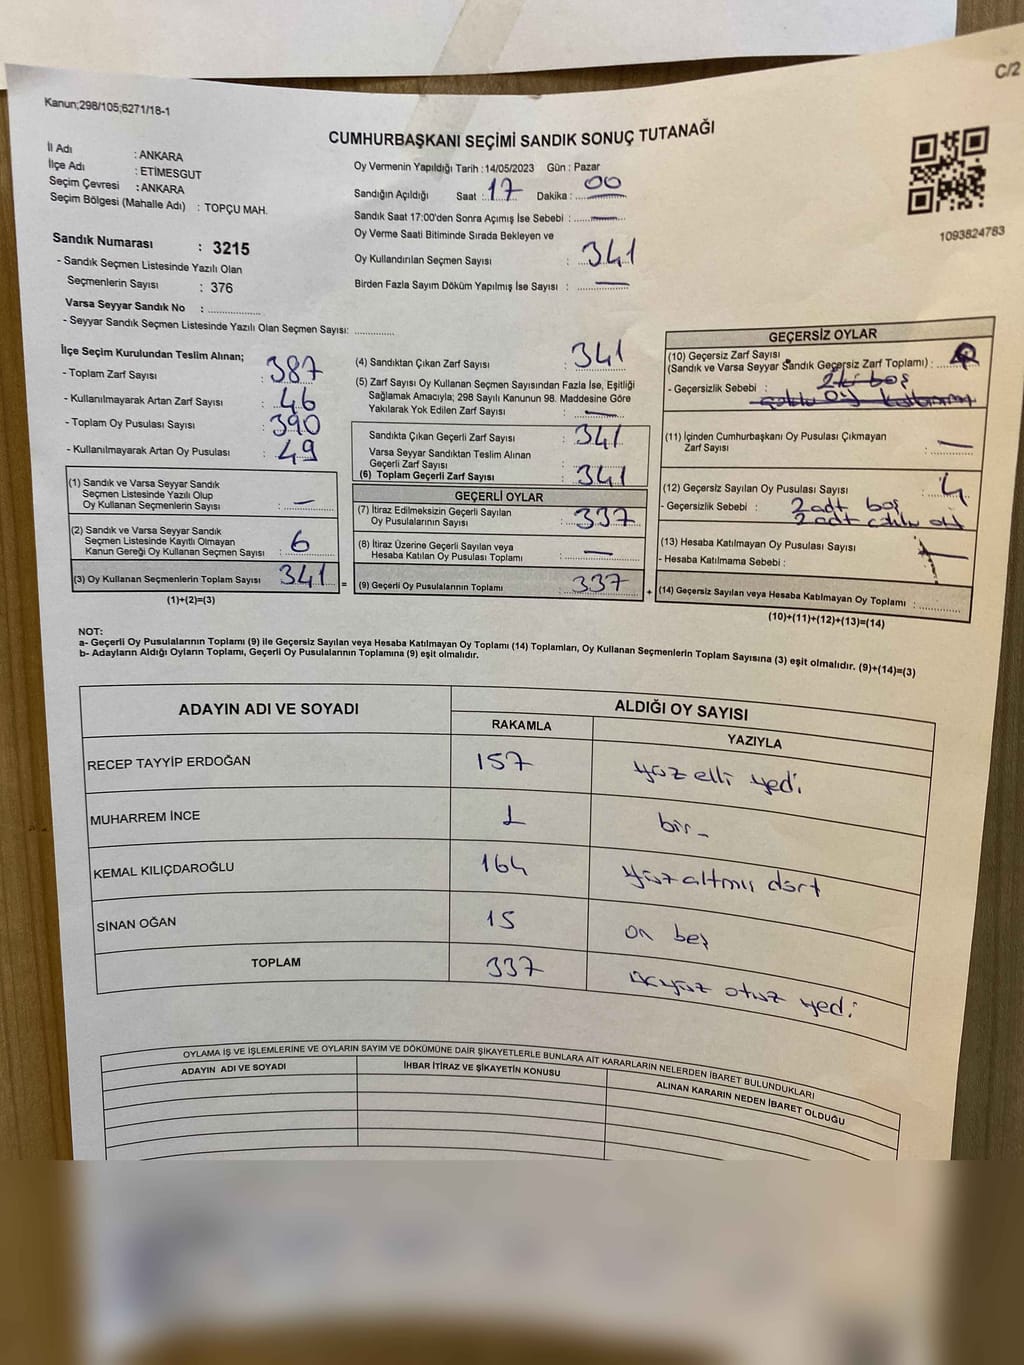 C/2
Kanun;298/105;6271/18-1
CUMHURBAŞKANI SEÇİMİ SANDIK SONUÇ TUTANAĞI
İl Adı : ANKARA
İlçe Adı : ETİMESGUT
Seçim Çevresi : ANKARA
Seçim Bölgesi (Mahalle Adı) : TOPÇU MAH.
Sandık Numarası : 3215
- Sandık Seçmen Listesinde Yazılı Olan
Seçmenlerin Sayısı : 376
Varsa Seyyar Sandık No :
- Seyyar Sandık Seçmen Listesinde Yazılı Olan Seçmen Sayısı:
Oy Vermenin Yapıldığı Tarih : 14/05/2023 Gün : Pazar
Sandığın Açıldığı Saat : 17 Dakika : 00
Sandık Saat 17:00'den Sonra Açımış İse Sebebi : —
Oy Verme Saati Bitiminde Sırada Bekleyen ve
Oy Kullandırılan Seçmen Sayısı : 341
Birden Fazla Sayım Döküm Yapılmış İse Sayısı : —
1093824783
İlçe Seçim Kurulundan Teslim Alınan;
- Toplam Zarf Sayısı : 387
- Kullanılmayarak Artan Zarf Sayısı : 46
- Toplam Oy Pusulası Sayısı : 390
- Kullanılmayarak Artan Oy Pusulası : 49
(1) Sandık ve Varsa Seyyar Sandık
Seçmen Listesinde Yazılı Olup
Oy Kullanan Seçmenlerin Sayısı : —
(2) Sandık ve Varsa Seyyar Sandık
Seçmen Listesinde Kayıtlı Olmayan
Kanun Gereği Oy Kullanan Seçmen Sayısı : 6
(3) Oy Kullanan Seçmenlerin Toplam Sayısı 341 =
(1)+(2)=(3)
(4) Sandıktan Çıkan Zarf Sayısı : 341
(5) Zarf Sayısı Oy Kullanan Seçmen Sayısından Fazla İse, Eşitliği
Sağlamak Amacıyla; 298 Sayılı Kanunun 98. Maddesine Göre
Yakılarak Yok Edilen Zarf Sayısı : —
Sandıkta Çıkan Geçerli Zarf Sayısı : 341
Varsa Seyyar Sandıktan Teslim Alınan
Geçerli Zarf Sayısı :
(6) Toplam Geçerli Zarf Sayısı : 341
GEÇERLİ OYLAR
(7) İtiraz Edilmeksizin Geçerli Sayılan
Oy Pusulalarının Sayısı : 337
(8) İtiraz Üzerine Geçerli Sayılan veya
Hesaba Katılan Oy Pusulası Toplamı : —
(9) Geçerli Oy Pusulalarının Toplamı : 337 +
GEÇERSİZ OYLAR
(10) Geçersiz Zarf Sayısı
(Sandık ve Varsa Seyyar Sandık Geçersiz Zarf Toplamı) :
- Geçersizlik Sebebi : boş
(11) İçinden Cumhurbaşkanı Oy Pusulası Çıkmayan
Zarf Sayısı : —
(12) Geçersiz Sayılan Oy Pusulası Sayısı : 4
- Geçersizlik Sebebi : 2 adt boş
2 adt
(13) Hesaba Katılmayan Oy Pusulası Sayısı : —
- Hesaba Katılmama Sebebi :
(14) Geçersiz Sayılan veya Hesaba Katılmayan Oy Toplamı :
(10)+(11)+(12)+(13)=(14)
NOT:
a- Geçerli Oy Pusulalarının Toplamı (9) ile Geçersiz Sayılan veya Hesaba Katılmayan Oy Toplamı (14) Toplamları, Oy Kullanan Seçmenlerin Toplam Sayısına (3) eşit olmalıdır. (9)+(14)=(3)
b- Adayların Aldığı Oyların Toplamı, Geçerli Oy Pusulalarının Toplamına (9) eşit olmalıdır.
ADAYIN ADI VE SOYADI ALDIĞI OY SAYISI
RAKAMLA YAZIYLA
RECEP TAYYİP ERDOĞAN 157 yüz elli yedi
MUHARREM İNCE 1 bir
KEMAL KILIÇDAROĞLU 164 yüzaltmış dört
SİNAN OĞAN 15 on beş
TOPLAM 337 üçyüz otuz yedi
OYLAMA İŞ VE İŞLEMLERİNE VE OYLARIN SAYIM VE DÖKÜMÜNE DAİR ŞİKAYETLERLE BUNLARA AİT KARARLARIN NELERDEN İBARET BULUNDUKLARI
ADAYIN ADI VE SOYADI İHBAR İTİRAZ VE ŞİKAYETİN KONUSU ALINAN KARARIN NEDEN İBARET OLDUĞU